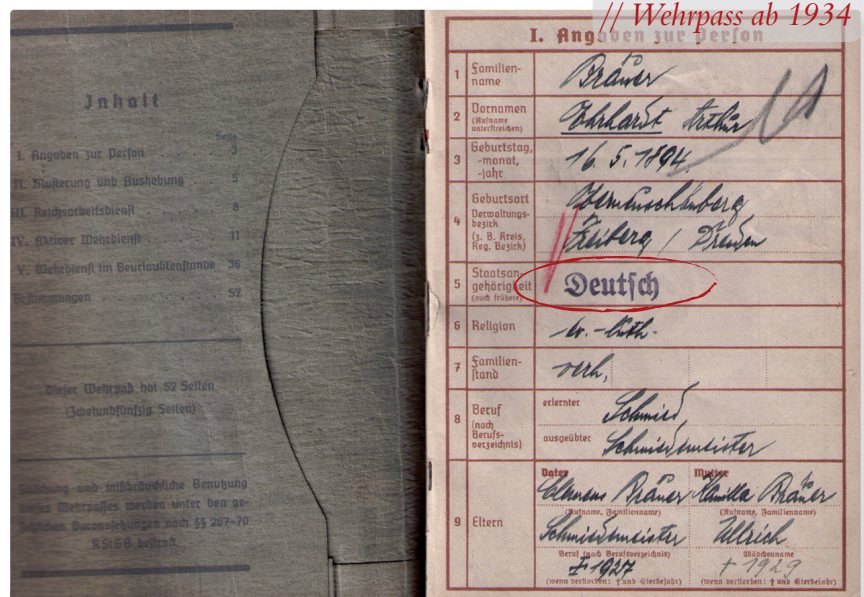 // Wehrpass ab 1934
Inhalt
Seite
I. Angaben zur Person . . . 3
II. Musterung und Aushebung . 5
III. Reichsarbeitsdienst . . . 8
IV. Aktiver Wehrdienst . . . 11
V. Wehrdienst im Beurlaubtenstande 36
Bestimmungen . . . 52
Dieser Wehrpaß hat 52 Seiten
(Zweiundfünfzig Seiten)
und mißbräuchliche Benutzung
des Wehrpasses werden unter den ge-
Voraussetzungen nach §§ 267-70
RStGB bestraft.
I. Angaben zur Person
1 Familien-
name
Bräuer
2 Vornamen
(Rufname
unterstreichen)
Ehrhardt Arthur
3 Geburtstag,
-monat,
-jahr
16. 5. 1894.
4 Geburtsort
Verwaltungs-
bezirk
(z. B. Kreis,
Reg. Bezirk)
Freiberg / Dresden
5 Staatsan-
gehörigkeit
(auch frühere)
Deutsch
6 Religion
ev. - luth.
7 Familien-
stand
verh.
8 Beruf
(nach
Berufs-
verzeichnis)
erlernter
Schmied
ausgeübter
Schmiedemeister
9 Eltern
Vater Mutter
Clemens Bräuer Kamilla Bräuer
(Rufname, Familienname) (Rufname, Familienname)
Schmiedemeister Ullrich
Beruf (nach Berufsverzeichnis) Mädchenname
† 1927 † 1929
(wenn verstorben: † und Sterbejahr) (wenn verstorben: † und Sterbejahr)